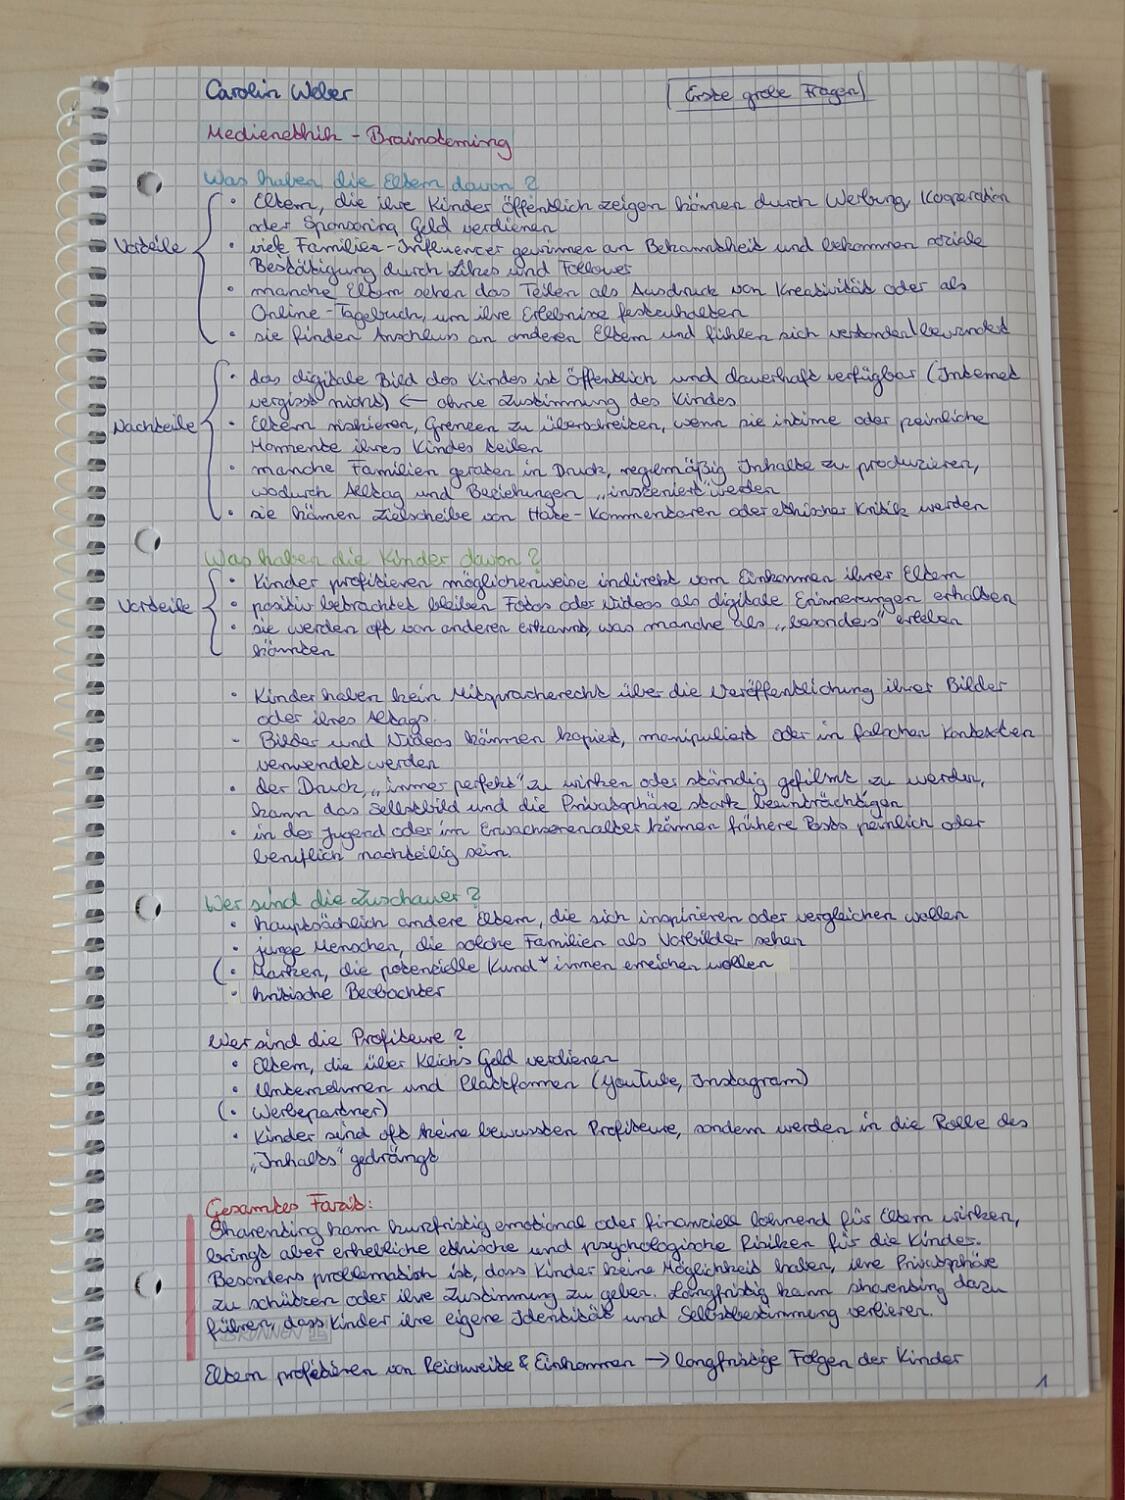 Carolin Weber
Erste große Fragen
Medienethik - Brainstorming
Was haben die Eltern davon?
Vorteile
• Eltern, die ihre Kinder öffentlich zeigen können durch Werbung, Kooperation
oder Sponsoring Geld verdienen
• viele Familien-Influencer gewinnen an Bekanntheit und bekommen soziale
Bestätigung durch Likes und Follower
• manche Eltern sehen das Teilen als Ausdruck von Kreativität oder als
Online-Tagebuch, um ihre Erlebnisse festzuhalten
• sie finden Anschluss an anderen Eltern und fühlen sich verstanden/bewundert
Nachteile
• das digitale Bild des Kindes ist öffentlich und dauerhaft verfügbar (Internet
vergisst nicht) ← ohne Zustimmung des Kindes
• Eltern riskieren, Grenzen zu überschreiten, wenn sie intime oder peinliche
Momente ihres Kindes teilen
• manche Familien geraten in Druck, regelmäßig Inhalte zu produzieren,
wodurch Alltag und Beziehungen „inszeniert" werden
• sie können Zielscheibe von Hate-Kommentaren oder ethischer Kritik werden
Was haben die Kinder davon?
Vorteile
• Kinder profitieren möglicherweise indirekt vom Einkommen ihrer Eltern
• positiv betrachtet bleiben Fotos oder Videos als digitale Erinnerungen erhalten
• sie werden oft von anderen erkannt, was manche als „besonders" erleben
könnten
• Kinder haben kein Mitspracherecht über die Veröffentlichung ihrer Bilder
oder ihres Alltags.
- Bilder und Videos können kopiert, manipuliert oder in falschen Kontexten
verwendet werden
• der Druck, „immer perfekt" zu wirken oder ständig gefilmt zu werden,
kann das Selbstbild und die Privatsphäre stark beeinträchtigen
• in der Jugend oder im Erwachsenenalter können frühere Posts peinlich oder
beruflich nachteilig sein.
Wer sind die Zuschauer?
• hauptsächlich andere Eltern, die sich inspirieren oder vergleichen wollen
• junge Menschen, die solche Familien als Vorbilder sehen
(• Marken, die potenzielle Kund*innen erreichen wollen
• kritische Beobachter
Wer sind die Profiteure?
• Eltern, die über Klicks Geld verdienen
• Unternehmen und Plattformen (YouTube, Instagram)
(• Werbepartner)
• Kinder sind oft keine bewussten Profiteure, sondern werden in die Rolle des
„Inhalts" gedrängt
Gesamtes Fazit:
Sharenting kann kurzfristig emotional oder finanziell lohnend für Eltern wirken,
bringt aber erhebliche ethische und psychologische Risiken für die Kinder.
Besonders problematisch ist, dass Kinder keine Möglichkeit haben, ihre Privatsphäre
zu schützen oder ihre Zustimmung zu geben. Langfristig kann sharenting dazu
führen, dass Kinder ihre eigene Identität und Selbstbestimmung verlieren.
BRUNNEN
Eltern profitieren von Reichweite & Einkommen → langfristige Folgen der Kinder
1